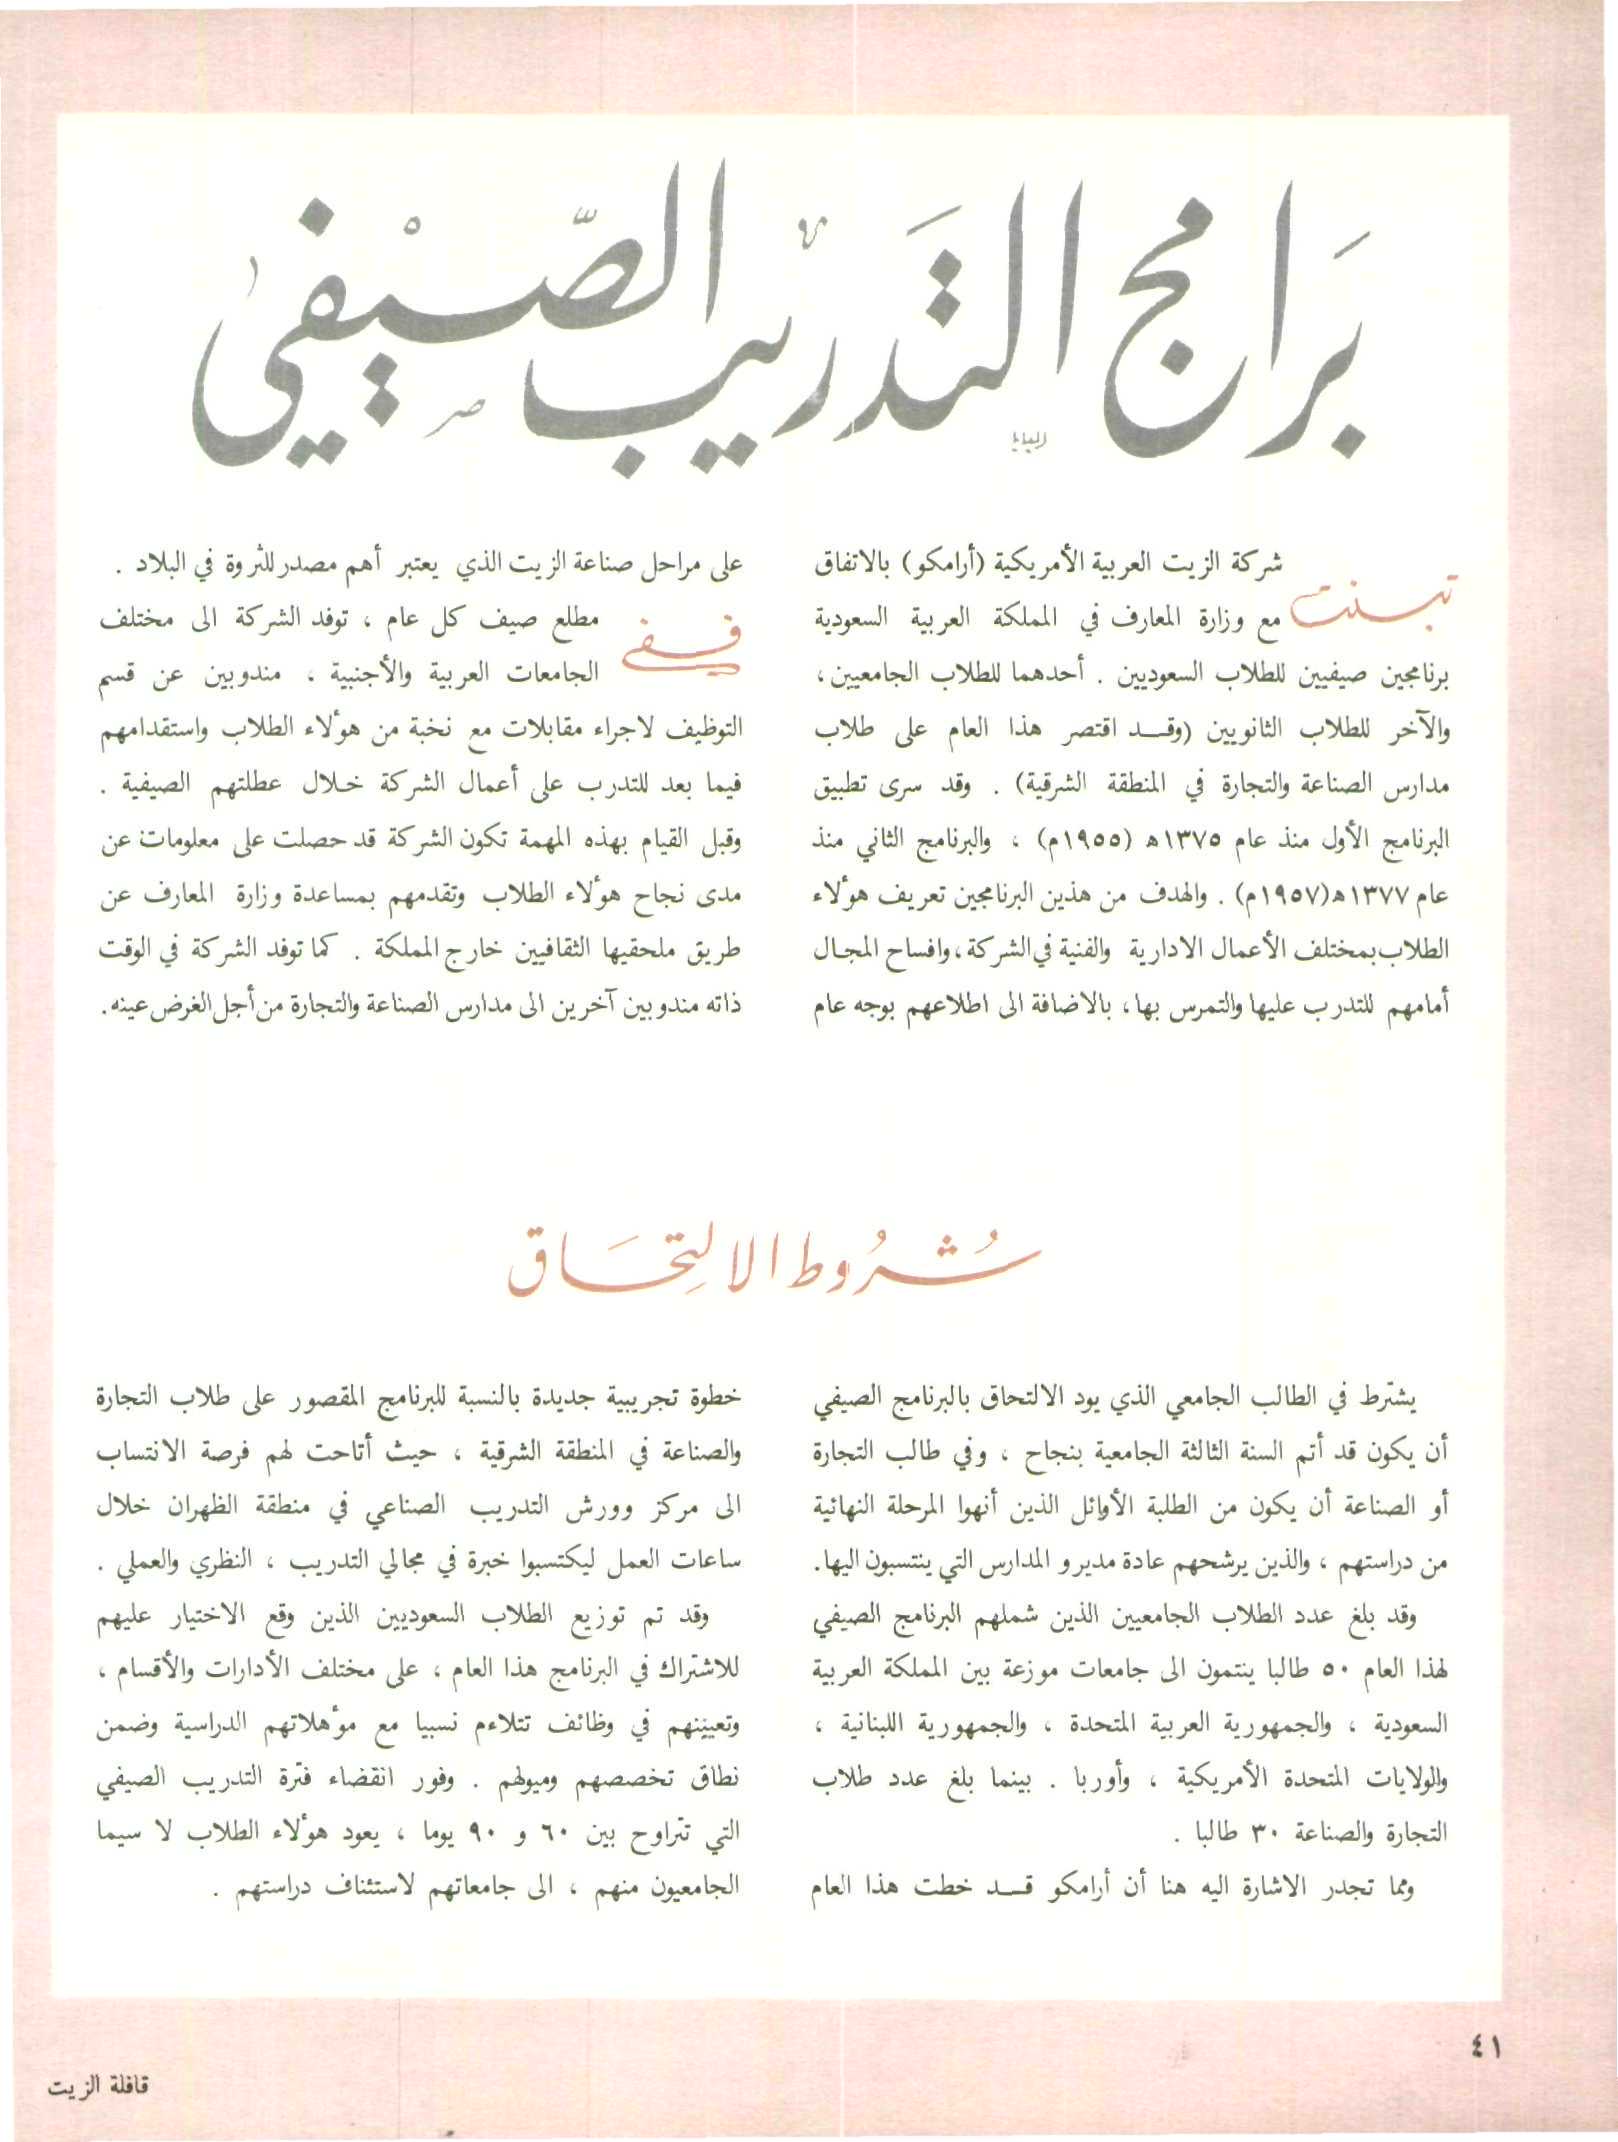 برامج التدريب الصيفي
تبنت شركة الزيت العربية الأمريكية (أرامكو) بالاتفاق
مع وزارة المعارف في المملكة العربية السعودية
برنامجين صيفيين للطلاب السعوديين . أحدهما للطلاب الجامعيين ،
والآخر للطلاب الثانويين (وقـد اقتصر هذا العام على طلاب
مدارس الصناعة والتجارة في المنطقة الشرقية) . وقد سرى تطبيق
البرنامج الأول منذ عام ١٣٧٥ه (١٩٥٥م) ، والبرنامج الثاني منذ
عام ١٣٧٧ه(١٩٥٧م) . والهدف من هذين البرنامجين تعريف هؤلاء
الطلاب بمختلف الأعمال الادارية والفنية في الشركة ، وافساح المجـال
أمامهم للتدرب عليها والتمرس بها ، بالاضافة الى اطلاعهم بوجه عام
على مراحل صناعة الزيت الذي يعتبر أهم مصدر للثروة في البلاد .
ففي مطلع صيف كل عام ، توفد الشركة الى مختلف
الجامعات العربية والأجنبية ، مندوبين عن قسم
التوظيف لاجراء مقابلات مع نخبة من هؤلاء الطلاب واستقدامهم
فيما بعد للتدرب على أعمال الشركة خـلال عطلتهم الصيفية .
وقبل القيام بهذه المهمة تكون الشركة قد حصلت على معلومات عن
مدى نجاح هؤلاء الطلاب وتقدمهم بمساعدة وزارة المعارف عن
طريق ملحقيها الثقافيين خارج المملكة . كما توفد الشركة في الوقت
ذاته مندوبين آخرين الى مدارس الصناعة والتجارة من أجل الغرض عينه.
شُروط الالتِحَاق
يشترط في الطالب الجامعي الذي يود الالتحاق بالبرنامج الصيفي
أن يكون قد أتم السنة الثالثة الجامعية بنجاح ، وفي طالب التجارة
أو الصناعة أن يكون من الطلبة الأوائل الذين أنهوا المرحلة النهائية
من دراستهم ، والذين يرشحهم عادة مديرو المدارس التي ينتسبون اليها.
وقد بلغ عدد الطلاب الجامعيين الذين شملهم البرنامج الصيفي
لهذا العام ٥٠ طالبا ينتمون الى جامعات موزعة بين المملكة العربية
السعودية ، والجمهورية العربية المتحدة ، والجمهورية اللبنانية ،
والولايات المتحدة الأمريكية ، وأوربا . بينما بلغ عدد طلاب
التجارة والصناعة ٣٠ طالبا .
ومما تجدر الاشارة اليه هنا أن أرامكو قـد خطت هذا العام
خطوة تجريبية جديدة بالنسبة للبرنامج المقصور على طلاب التجارة
والصناعة في المنطقة الشرقية ، حيث أتاحت لهم فرصة الانتساب
الى مركز وورش التدريب الصناعي في منطقة الظهران خلال
ساعات العمل ليكتسبوا خبرة في مجالي التدريب ، النظري والعملي .
وقد تم توزيع الطلاب السعوديين الذين وقع الاختيار عليهم
للاشتراك في البرنامج هذا العام ، على مختلف الأدارات والأقسام ،
وتعيينهم في وظائف تتلاءم نسبيا مع مؤهلاتهم الدراسية وضمن
نطاق تخصصهم وميولهم . وفور انقضاء فترة التدريب الصيفي
التي تتراوح بين ٦٠ و ٩٠ يوما ، يعود هؤلاء الطلاب لا سيما
الجامعيون منهم ، الى جامعاتهم لاستئناف دراستهم .
٤١
قافلة الزيت